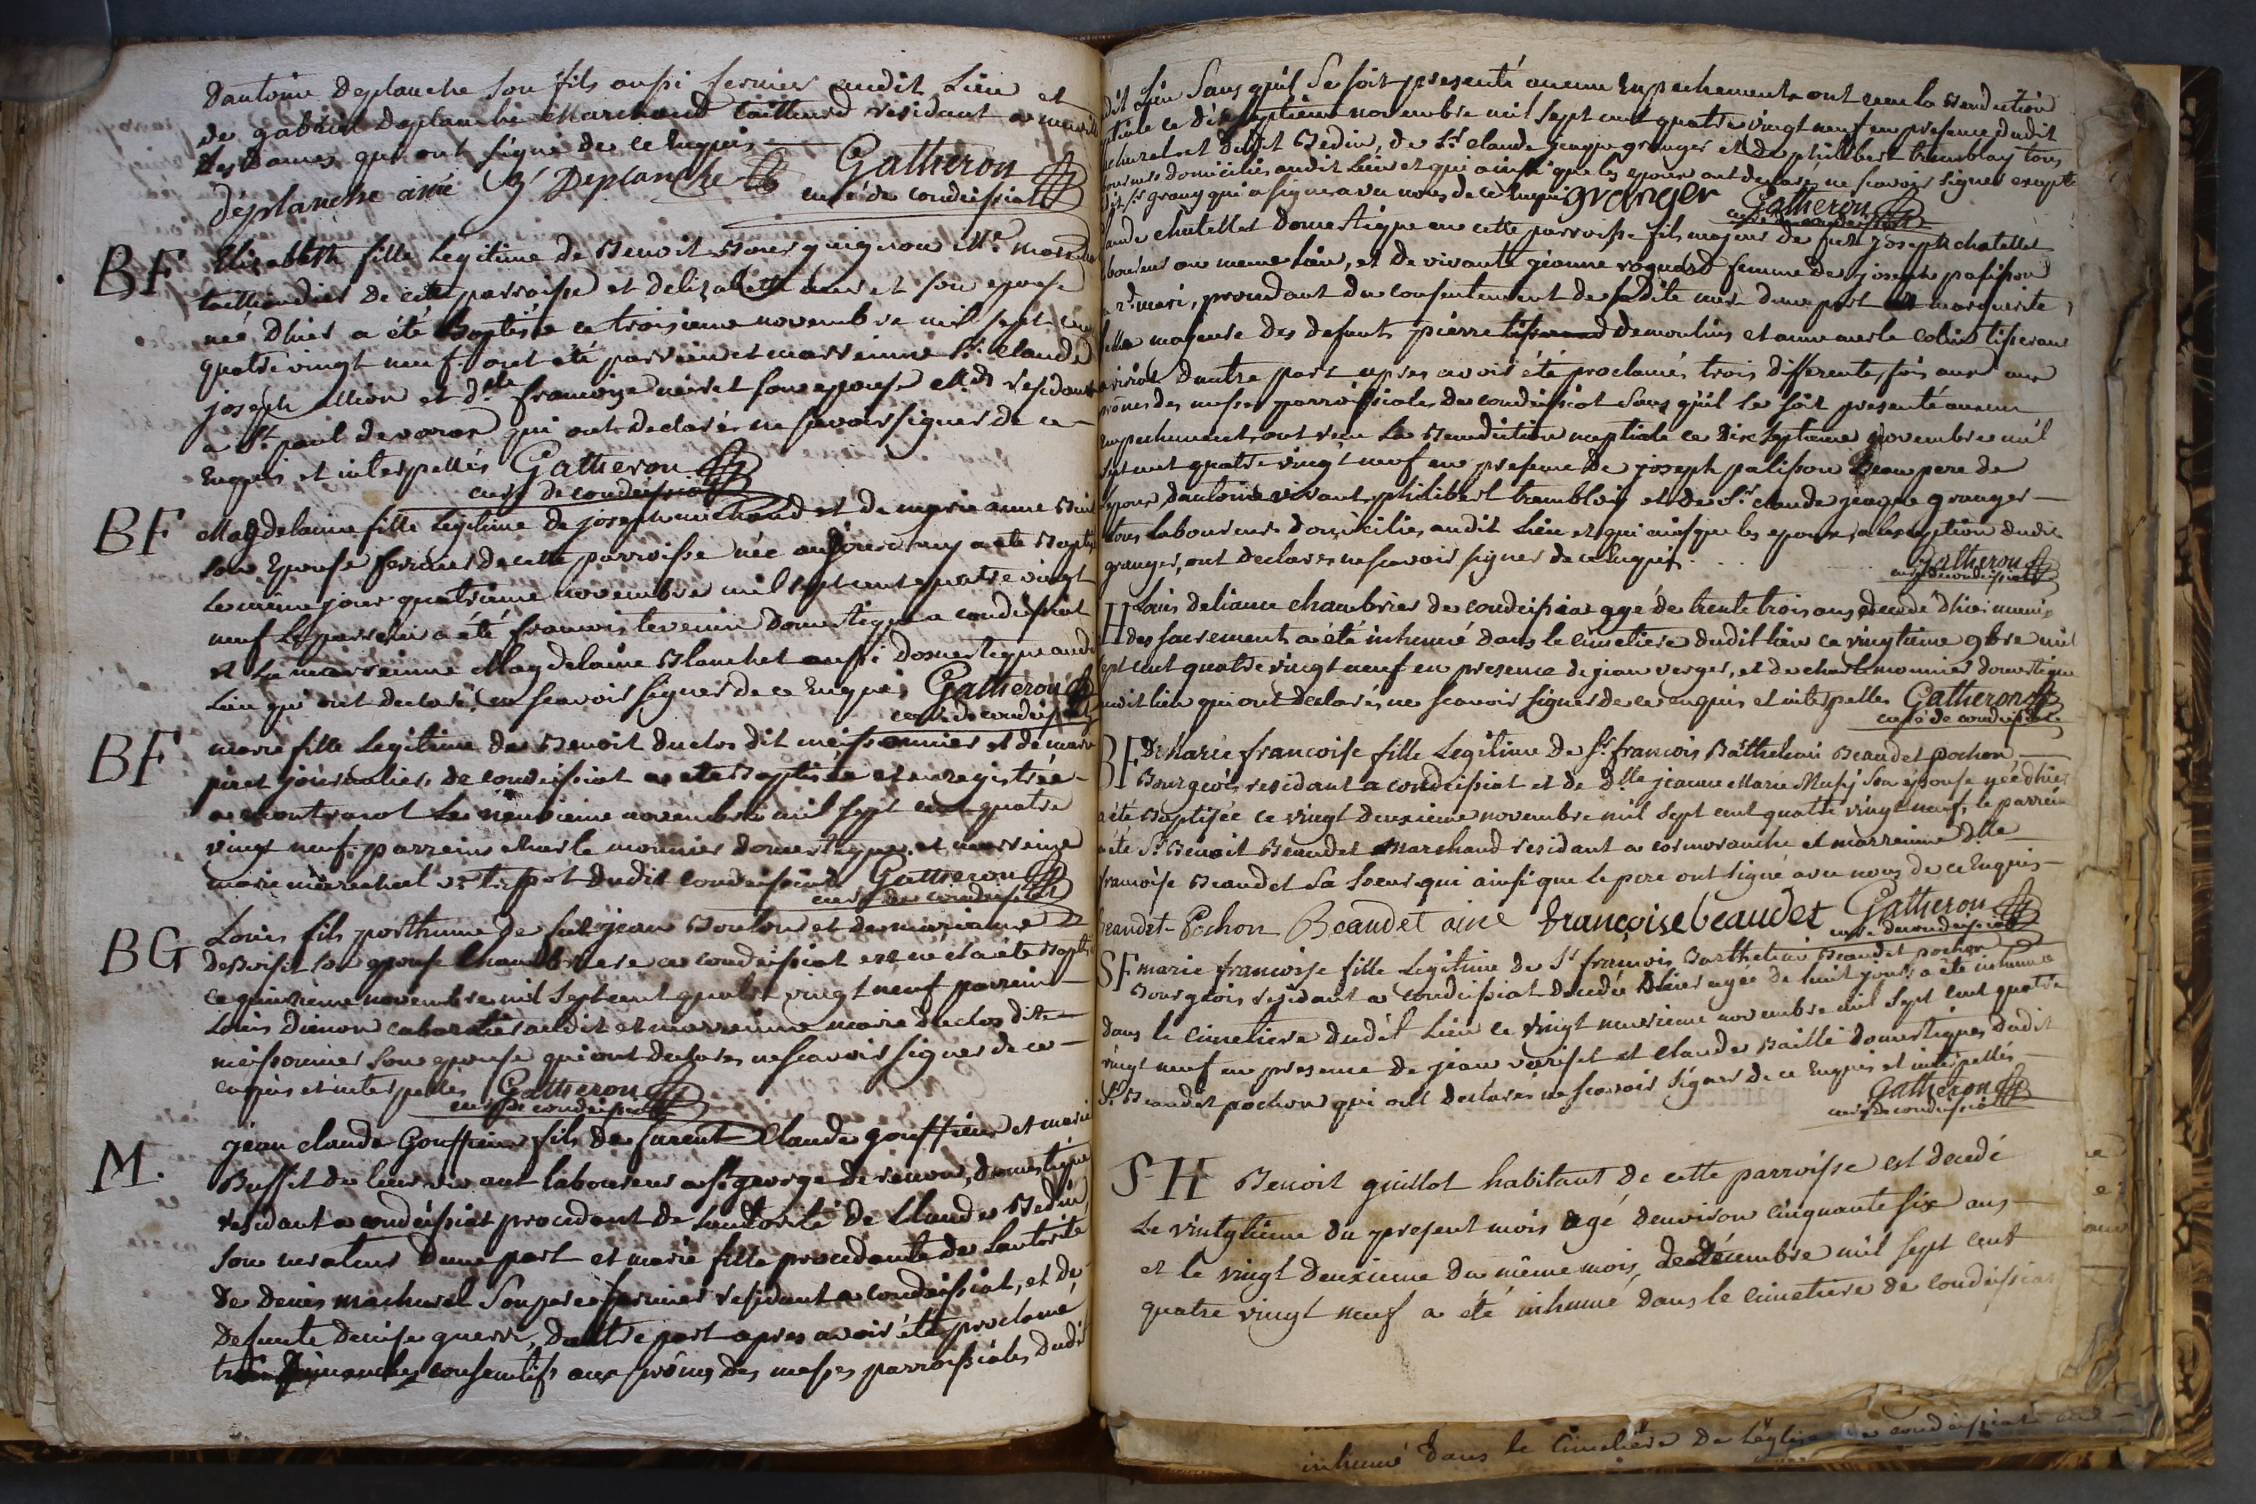 dantoine Deplanche son fils aussi fermier audit Lieu et
de gabriel Deplanche Marchand tailleur residant a
des dames qui ont signé de ce Enquis
déplanche ainé Deplanche Gatheron
curé de condeissiat
BF Elizabeth fille Legitime de Benoit Bourguignon Me
taillandier de cette parroisse et delizabeth et son epouse
née Dhier a été Baptisée ce troisieme novembre mil sept cent
quatre vingt neuf ont été parrein et marreinne Sr Claude
joseph Mion et dlle francoise neiret son epouse Mds residant
a St paul de varax qui ont declarés ne scavoir signer de ce
Enquis et interpellés Gatheron
curé de condeissiat
BF Magdelaine fille Legitime de joseph michaud et de marie anne
son Epouse fermier de cette parroisse née aujourdhuy a ete Baptisé
Le même jour quatrieme novembre mil sept cent quatre vingt
neuf Le parrein a été francois tevenin Domestique a condeissiat
et La marreinne Magdelaine Blanchet aussi Domestique audit
Lieu qui ont declaré ne scavoir signer de ce Enquis Gatheron
curé de condeissiat
BF marie fille Legitime de Benoit duclos dit meissonnier et de marie
piret journalier de condeissiat a ete Baptisée et enregistrée
a montracol Le neuvieme novembre mil sept cent quatre
vingt neuf parrein charle monnier domestique et marreine
marie marechal dudit condeissiat Gatheron
curé de condeissiat
BG Louis fils posthume de feu jean Bouton et de mariame
deboisset son epouse chambriere a condeissiat est né et a été Baptisé
ce quinzieme novembre mil sept cent quatre vingt neuf parrein
Louis Dienon cabaretier audit et marreinne marie duclos dite
meissonnier son epouse qui ont declarés ne scavoir signer de ce
enquis et interpelles Gatheron
curé de condeissiat
M. jean claude Gouffieur fils de furent Claude gouffieur et marie
Buffit de leur vivant laboureur a St george de renon, domestique
residant a condeissiat procedant de Lautorité de Claude Bedin
son curateur dune part et marie fille procedante de Lautorité
de denis machurel son pere fermier residant a condeissiat, et de
defunte denise guerre, dautre part apres avoir été proclamé
trois dimanches consecutifs aux prônes des messes parroissiales dudit
dit Lieu Sans qu'il Se soit presenté aucun Empechement ont recu la Benediction
nuptiale ce dix septieme novembre mil sept cent quatre vingt neuf en presence dudit
machurel et dudit Bedin, de Sr claude jeanne granger et de philibert tremblay tous
laboureurs domiciliés audit Lieu et qui ainsi que les epoux ont declaré ne scavoir signer excepté
dit Sr granger qui a signé avec nous de ce Enquis granger Gatheron
curé de condeissiat
laude chatellet Domestique en cette parroisse fils majeur de feu joseph chatellet
boureur au meme lieu, et de vivante jeanne roquard femme de joseph palisson
2d mari, procedant du consentement de sadite mere dune part et marguerite
fille majeure des defunts pierre tisserand demoulins et anne merle colin tisserand
dautre part apres avoir été proclamés trois differentes fois aux
prônes des messes parroissiales de condeissiat sans qu'il se soit presenté aucun
empechement, ont recu La Benediction nuptiale ce Dix septieme novembre mil
sept cent quatre vingt neuf en presence de joseph palisson Beau pere de
lepoux dantoine vivant, philibert trembloy et de Sr claude jeanne granger
tous laboureurs domicilies audit Lieu et qui ainsi que les epoux, a lexeption dudit
granger, ont declarés ne scavoir signer de ce Enquis. Gatheron
curé de condeissiat
H Louis deliance chambrier de condeissiat agé de trente trois ans decedé dhier muni
des sacrements a été inhumé dans le cimetiere dudit lieu ce vingtieme 9bre mil
sept cent quatre vingt neuf en presence de jean verger, et de charle monnier domestique
audit lieu qui ont declarés ne scavoir signer de ce enquis et interpelles Gatheron
curé de condeissiat
BF Dlle Marie francoise fille Legitime de Sr francois Barthelemi Beaudet pochon
Bourgeois residant a condeissiat et de Dlle jeanne Marie Mussy son épouse née dhier
a été Baptisée ce vingt deuxieme novembre mil sept cent quatre vingt neuf, le parrein
a été Sr Benoit Beaudet Marchand residant a cormoranche et marreinne Dlle
francoise Beaudet Sa Soeur qui ainsi que le pere ont signé avec nous de ce Enquis
Beaudet-Pochon Beaudet ainé françoise beaudet Gatheron
curé de condeissiat
SF marie francoise fille Legitime de Sr francois Barthelemi Beaudet pochon
Bourgeois residant a condeissiat decedée Dhier agée de huit jours a été inhumée
dans le cimetiere dudit Lieu ce vingt neuvieme novembre mil sept cent quatre
vingt neuf en presence de jean voriset et Claude Baillé domestiques dudit
Sr Beaudet pochon qui ont declarés ne scavoir signer de ce Enquis et interpellés
Gatheron
curé de condeissiat
SH Benoit guillot habitant de cette parroisse est decedé
Le vingtieme du present mois agé denviron cinquante six ans
et le vingt deuxieme du même mois de décembre mil sept cent
quatre vingt neuf a été inhumé dans le cimetiere de Condeissiat
inhumé dans le Cimetière De Léglise de condeissiat